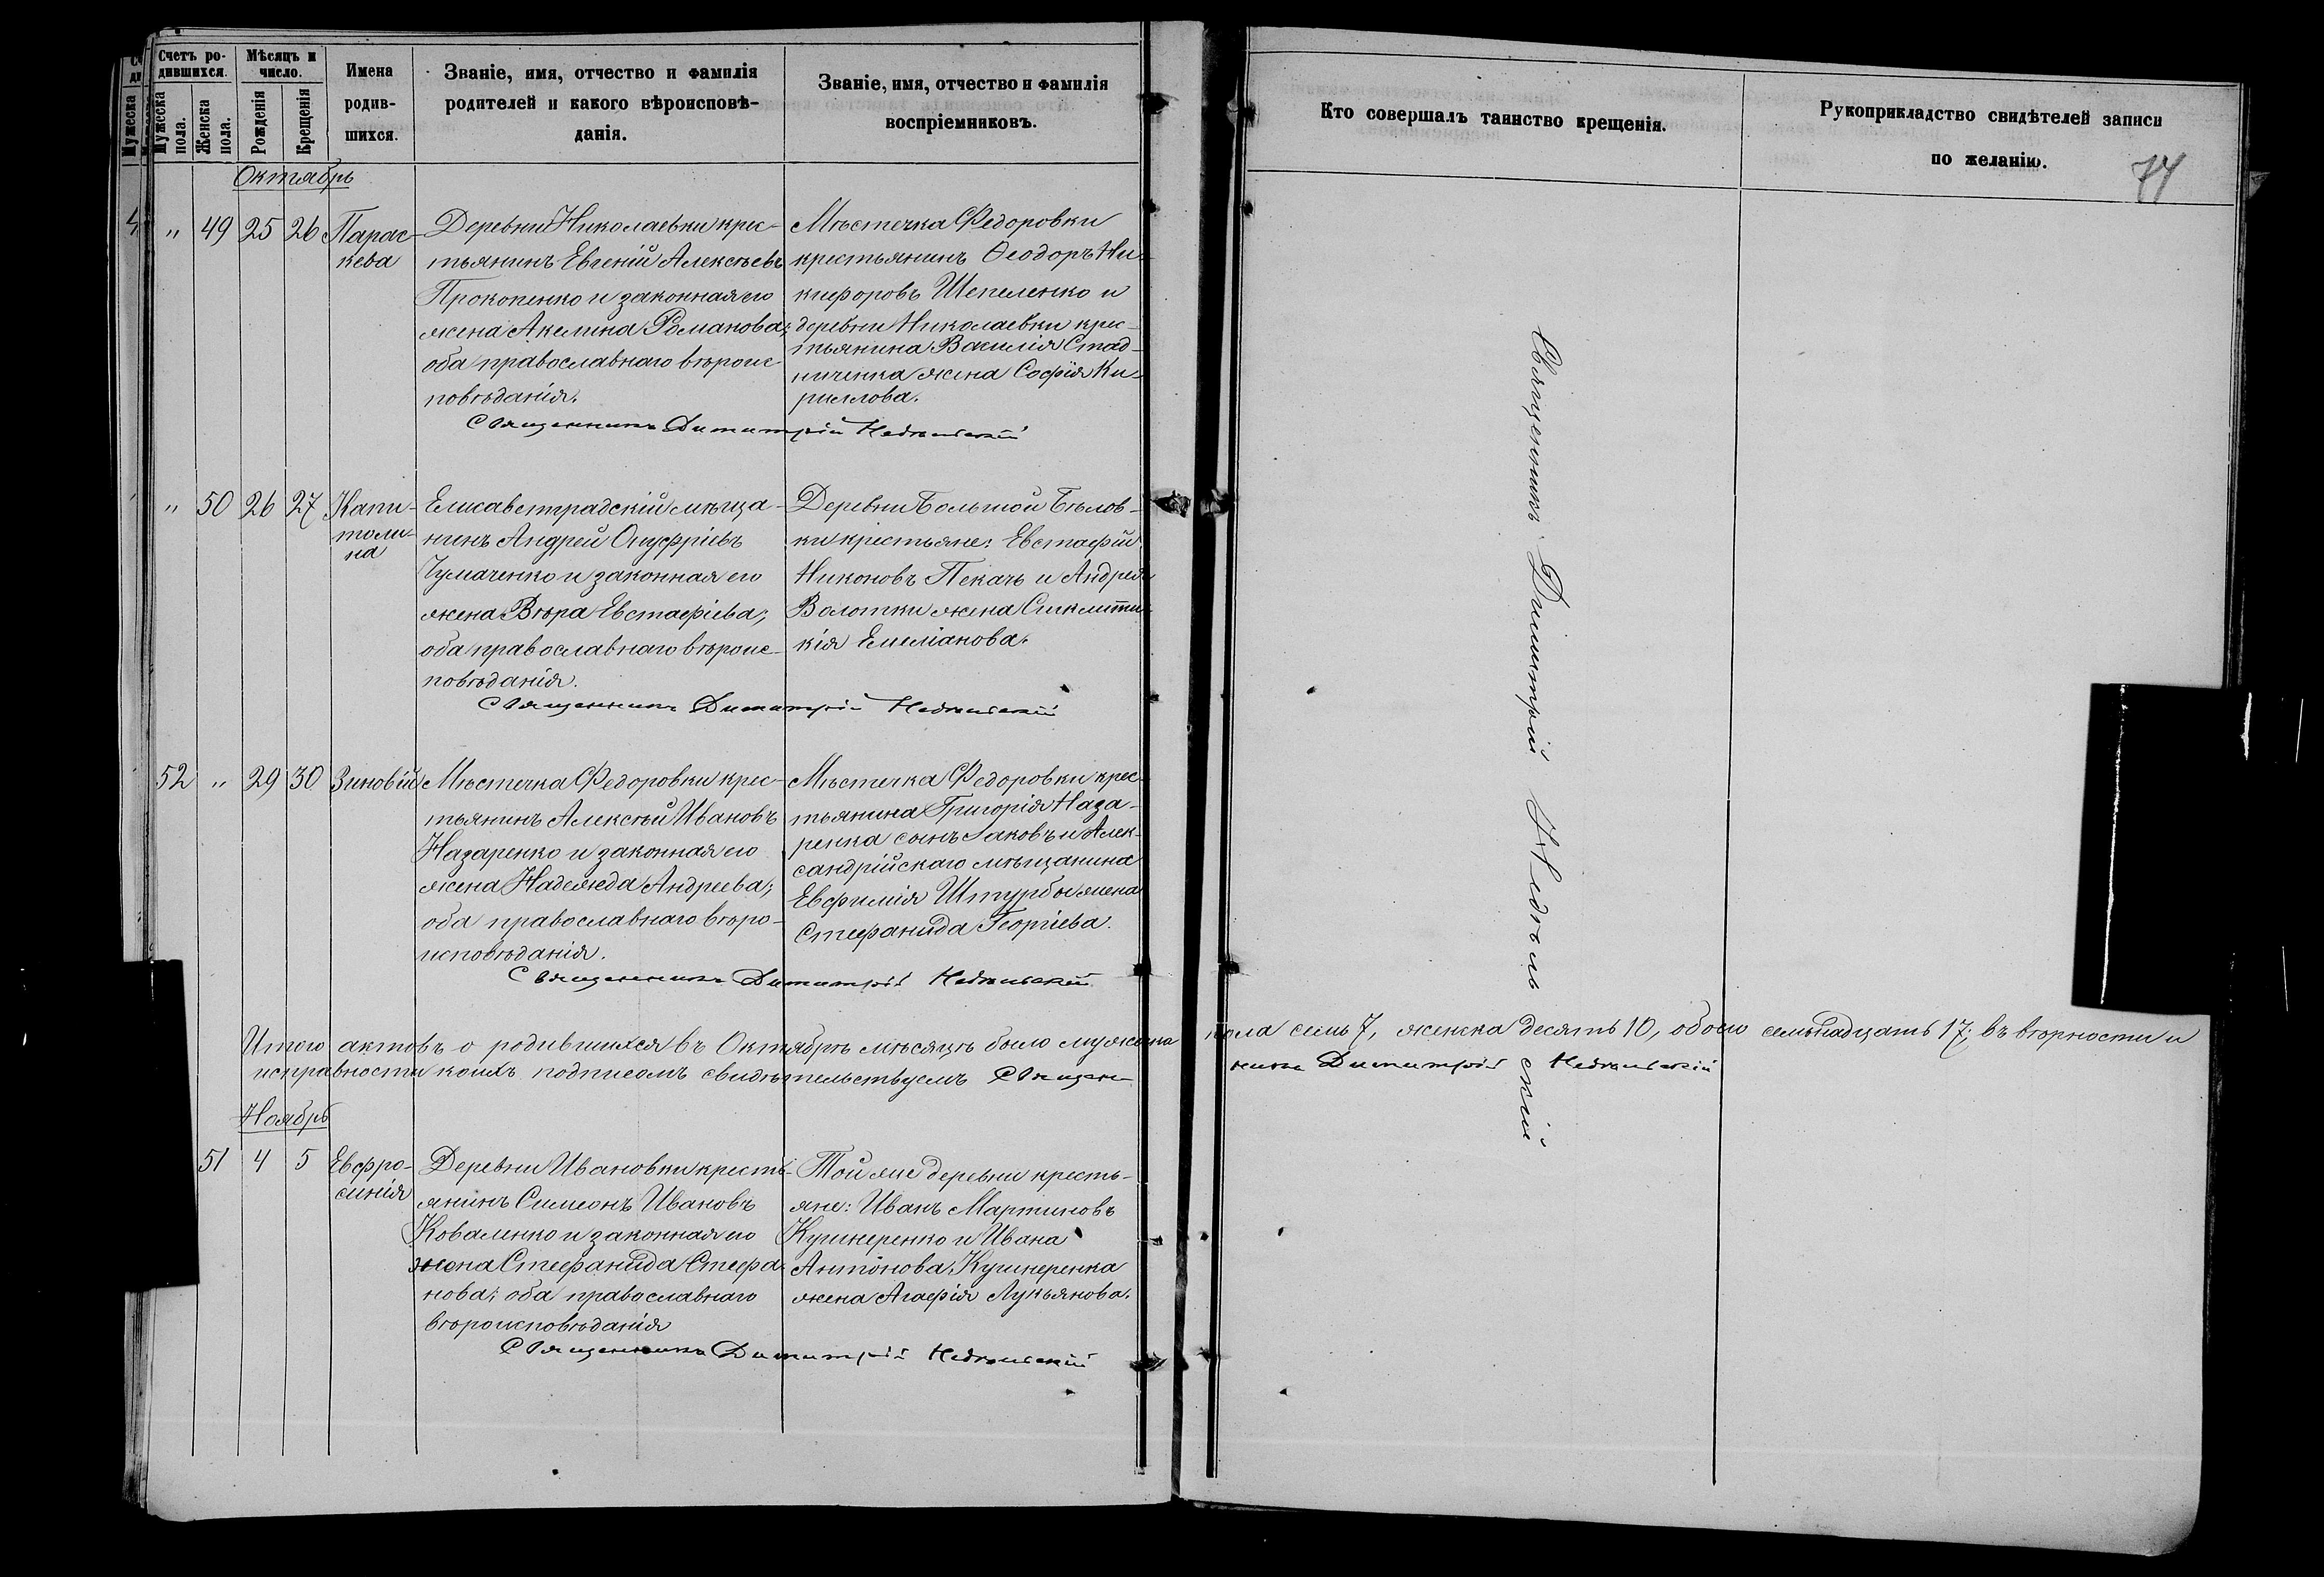 Счетъ ро-
дившихся.
Мѣсяцъ и
число.
Мужеска
пола.
Женска
пола.
Рожденія
Крещенія
Имена
родив-
шихся.
Званіе, имя, отчество и фамилія
родителей и какого вѣроисповѣ-
данія.
Званіе, имя, отчество и фамилія
воспріемниковъ.
Кто совершалъ таинство крещенія.
Рукоприкладство свидѣтелей записи
по желанію.
74
Октябрь
" 49 25 26
Парас-
кева
Деревни Николаевки крес-
тьянинъ Евгеній Алексѣевъ
Прокопенко и законная его
жена Акелина Романова;
оба православнаго вѣроис-
повѣданія.
Мѣстечка Федоровки
крестьянинъ Ѳеодоръ Ни-
кифоровъ Шепеленко и
деревни Николаевки крес-
тьянина Василія Стад-
ниченка жена Софія Ки-
риллова.
Священникъ Димитрій Недѣльскій
" 50 26 27
Капи-
толи-
на
Елисаветградскій мѣща-
нинъ Андрей Онуфріевъ
Чумаченко и законная его
жена Вѣра Евстафіева;
оба православнаго вѣроис-
повѣданія.
Деревни Большой Бѣлов-
ки крестьяне: Евстафій
Никоновъ Пекачъ и Андрея
Волотки жена Синклити-
кія Емеліанова.
Священникъ Димитрій Недѣльскій
52 " 29 30
Зиновій
Мѣстечка Федоровки крес-
тьянинъ Алексѣй Ивановъ
Назаренко и законная его
жена Надежда Андреева;
оба православнаго вѣро-
исповѣданія.
Мѣстечка Федоровки крес-
тьянина Григорія Наза-
ренка сынъ Іаковъ и Алек-
сандрійскаго мѣщанина
Евфимія Штурбы жена
Стефанида Георгіева.
Священникъ Димитрій Недѣльскій
Священникъ Димитрій Недѣльскій
Итого актовъ о родившихся въ Октябрѣ мѣсяцѣ было мужеска пола семь 7, женска десять 10, обоего семьнадцать 17; въ вѣрности и
исправности коихъ подписомъ свидѣтельствуемъ Священникъ Димитрій Недѣльскій
Ноябрь
51 4 5
Евфро-
синія
Деревни Ивановки кресть-
янинъ Симеонъ Ивановъ
Коваленко и законная его
жена Стефанида Стефа-
нова; оба православнаго
вѣроисповѣданія
Той же деревни кресть-
яне: Иванъ Мартиновъ
Кушнеренко и Ивана
Антонова Кушнеренка
жена Агафія Лукьянова.
Священникъ Димитрій Недѣльскій